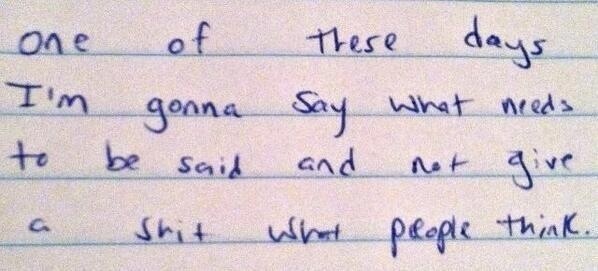 one of these days
I'm gonna say what needs
to be said and not give
a shit what people think.